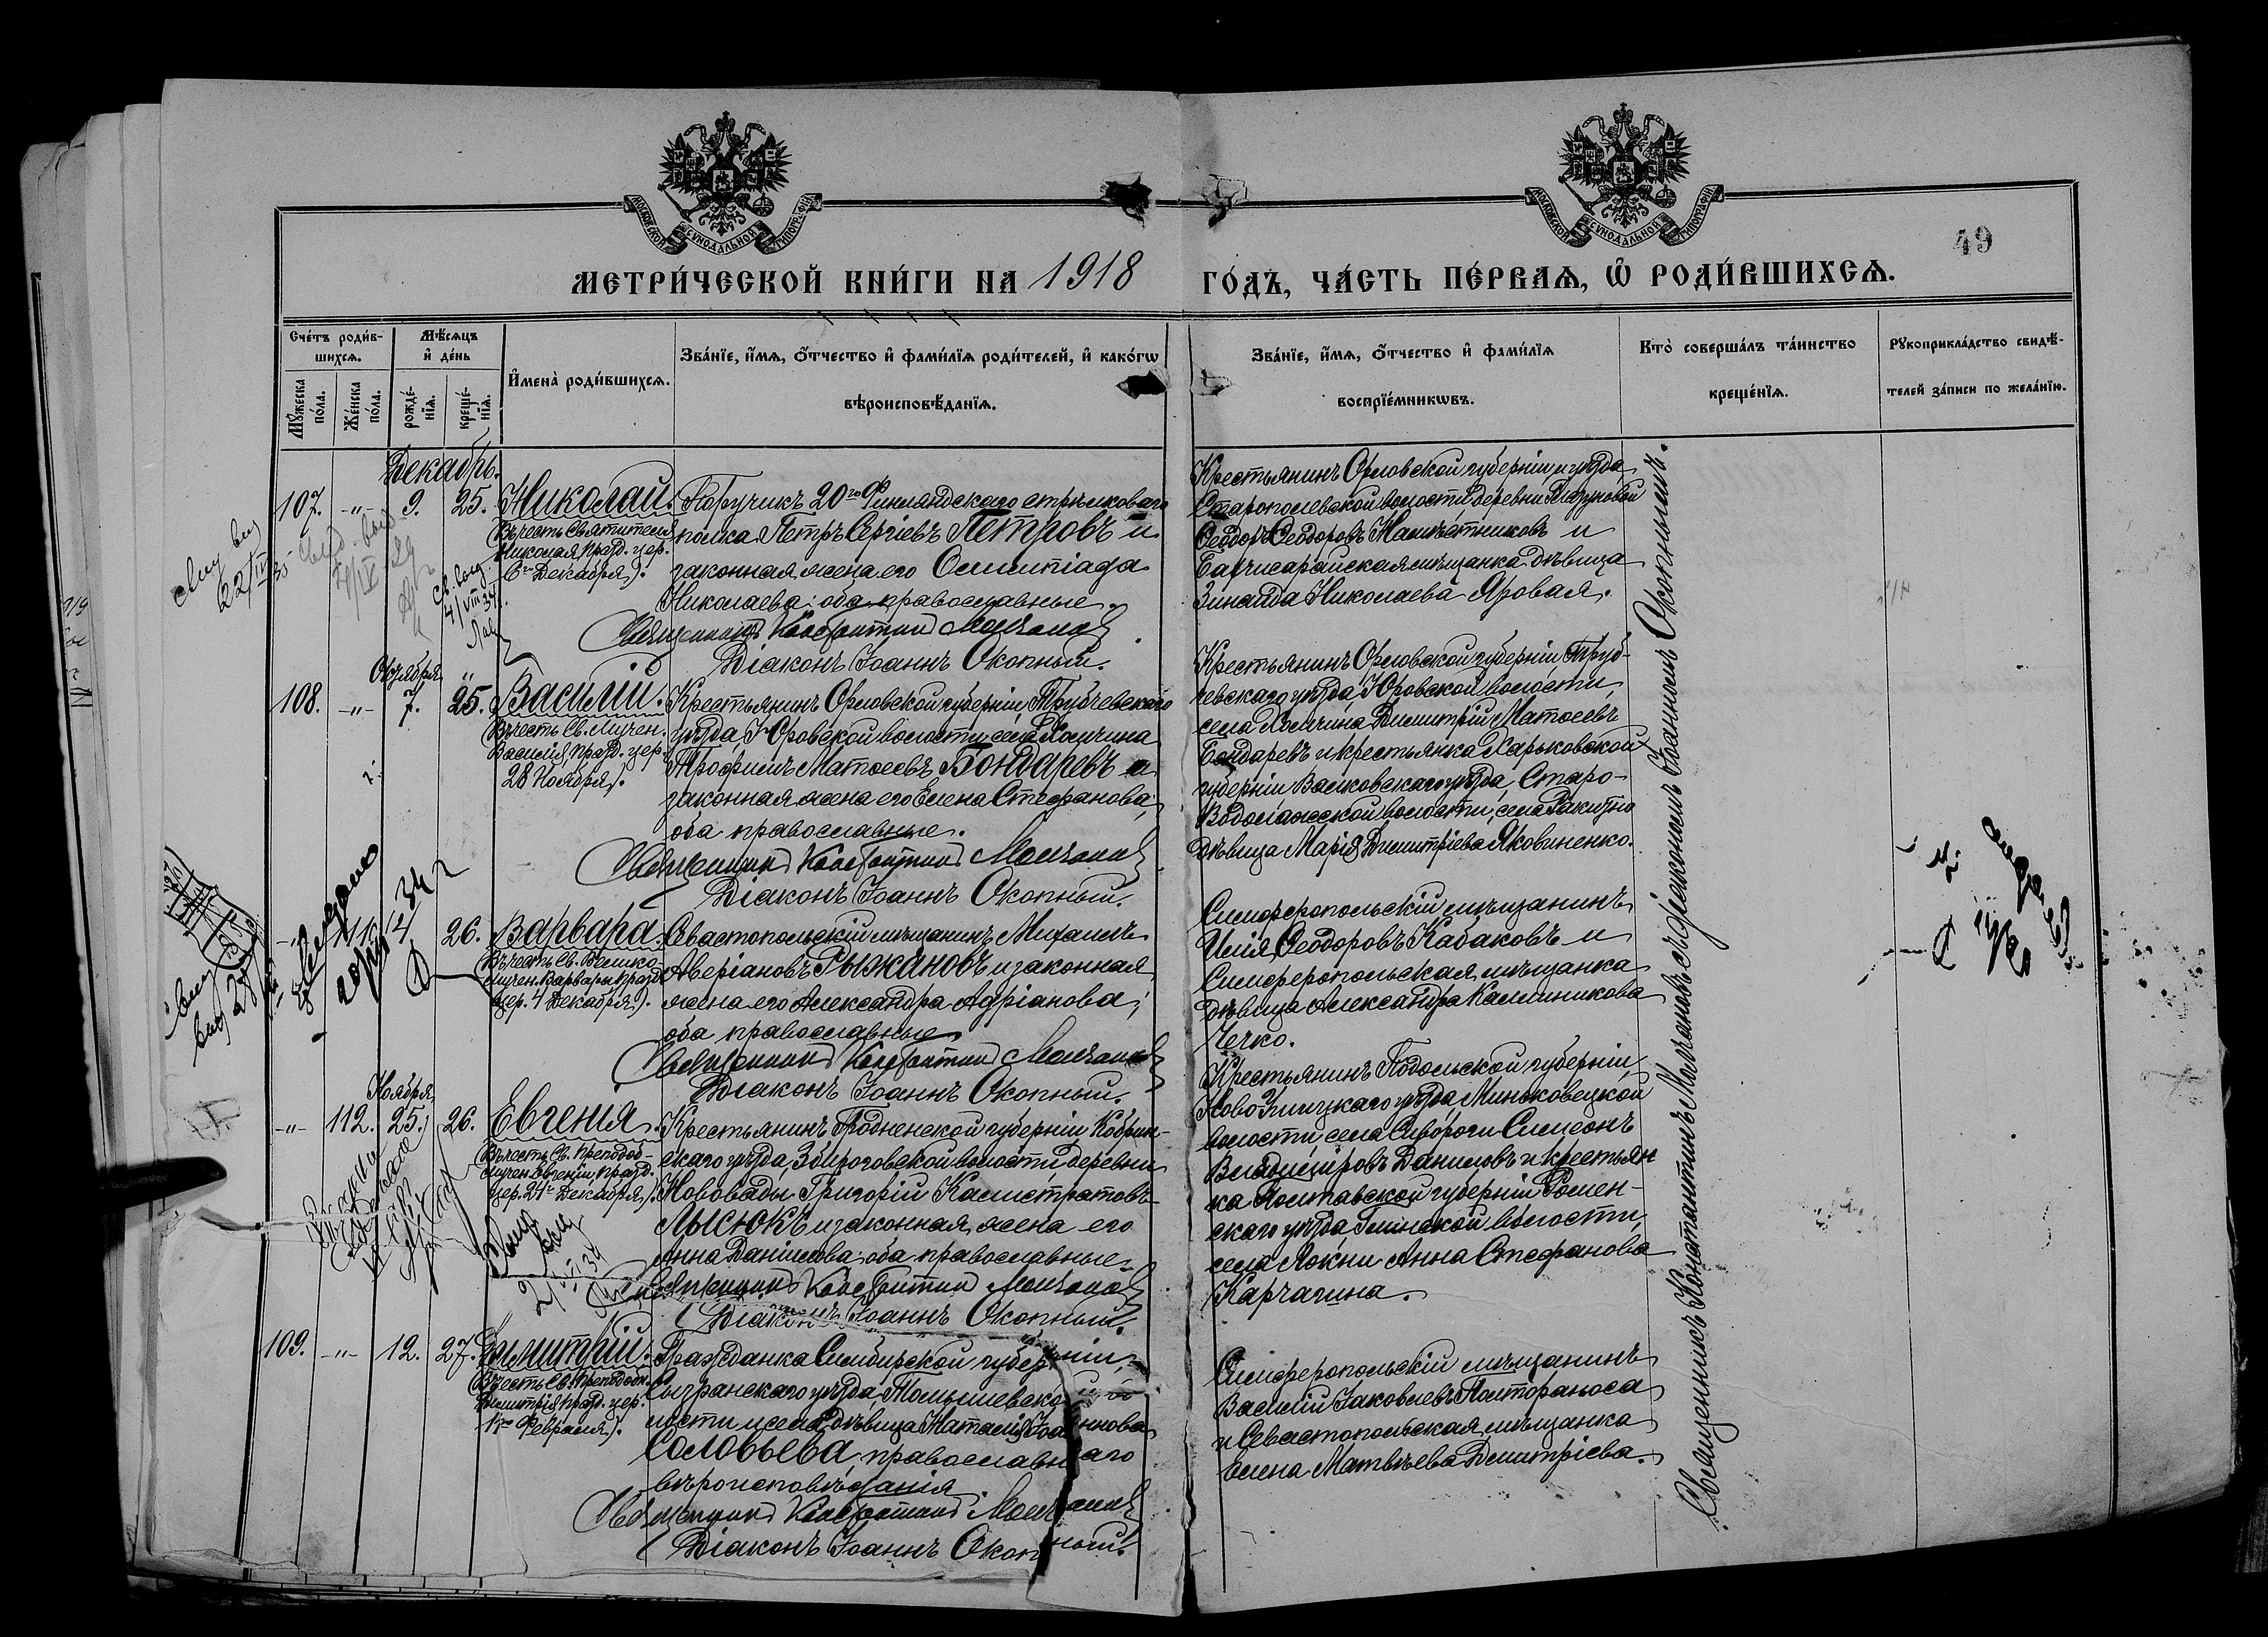 МОСКОВСКОЙ СѴНОДАЛЬНОЙ ТИПОГРАФІИ
МОСКОВСКОЙ СѴНОДАЛЬНОЙ ТИПОГРАФІИ
49
МЕТРИ́ЧЕСКОЙ КНИ́ГИ НА 1918 ГО́ДЪ, ЧА́СТЬ ПЕ́РВАѦ, Ѽ РОДИ́ВШИХСѦ.
Сче́тъ роди́в-
шихсѧ.
Мꙋ́жеска по́ла.
Же́нска по́ла.
Мѣ́сѧцъ
и҆ де́нь
рожде́-
нїѧ.
креще́-
нїѧ.
И҆мена̀ роди́вшихсѧ.
Зва́нїе, и҆́мѧ, ѻ҆́тчество и҆ фами́лїѧ роди́телей, и҆ како́гѡ
вѣроисповѣ́данїѧ.
Зва́нїе, и҆́мѧ, ѻ҆́тчество и҆ фами́лїѧ
воспрїе́мникѡвъ.
Кто̀ соверша́лъ та́инство
креще́нїѧ.
Рꙋкоприкла́дство свидѣ́-
телей за́писи по жела́нїю.
Декабрь.
107. -"- 9. 25. Николай.
Въ честь Святителя
Николая, празд. цер.
6го Декабря).
Поручикъ 20го Финляндскаго стрѣлковаго
полка Петръ Сергіевъ Петровъ и
законная жена его Олимпіада
Николаева; оба православные.
Священникъ Константинъ Молчановъ
Діаконъ Іоаннъ Окопный.
Крестьянинъ Орловской губерніи и уѣзда,
Старопольевской волости деревни
Ѳеодоръ Ѳеодоровъ и
Бахчисарайская мѣщанка дѣвица
Зинаида Николаева Яровая.
Октября "
108. -"- 7. 25. Василій.
Въ честь Св. Мучен.
Василія, празд. цер.
28 Ноября).
Крестьянинъ Орловской губерніи, Трубчевскаго
уѣзда, Юровской волости, села
Трофимъ Матѳеевъ Бондаревъ и
законная жена его Елена Стефанова,
оба православные.
Священникъ Константинъ Молчановъ
Діаконъ Іоаннъ Окопный.
Крестьянинъ Орловской губерніи Труб-
чевскаго уѣзда, Юровской волости,
села Димитрій Матѳеевъ
Бондаревъ и крестьянка Харьковской
губерніи Валковскаго уѣзда, Старо-
Водолажской волости, села Ракитно
дѣвица Марія Димитріева Яковиненко.
-"- 111. 14 26. Варвара.
Въ честь Св. Велико-
мучен. Варвары празд.
цер. 4 Декабря).
Севастопольскій мѣщанинъ Михаилъ
Аверіановъ Рыжановъ и законная
жена его Александра Адріанова;
оба православные
Священникъ Константинъ Молчановъ
Діаконъ Іоаннъ Окопный.
Симферопольскій мѣщанинъ
Илія Ѳеодоровъ Кабаковъ и
Симферопольская мѣщанка
дѣвица Александра Калинникова
Чечко.
Ноября
-"- 112. 25. 26. Евгенія.
Въ честь Св. Преподоб-
мучен. Евгеніи, празд.
цер. 24го Декабря).
Крестьянинъ Гродненской губерніи Кобрин-
скаго уѣзда, Збироговской волости деревни
Нововады Григорій Калистратовъ
Лысюкъ и законная жена его
Анна Данилова; оба православные.
Священникъ Константинъ Молчановъ
Діаконъ Іоаннъ Окопный.
Крестьянинъ Подольской губерніи,
Ново Ушицкаго уѣзда Миньковецкой
волости, села Сивороги Симеонъ
Владиміровъ Даниловъ и крестьян
ка Полтавской губерніи Ромен-
скаго уѣзда, Глинской волости,
села Анна Стефанова
Карчагина.
109. -"- 12. 27. Димитрій.
Въ честь Св. Преподобн.
Димитрія празд. цер.
Февраля).
Гражданка Симбирской губерніи,
Сызранскаго уѣзда, Томышевской во
лости и села дѣвица Наталія Іоаннова
Соловьева, православнаго
вѣроисповѣданія
Священникъ Константинъ Молчановъ
Діаконъ Іоаннъ Окопный.
Симферопольскій мѣщанинъ
Василій Іаковлевъ
и Севастопольская мѣщанка
Елена Матвѣева Димитріева.
Священникъ Константинъ Молчановъ съ діакономъ Іоанномъ Окопнымъ.